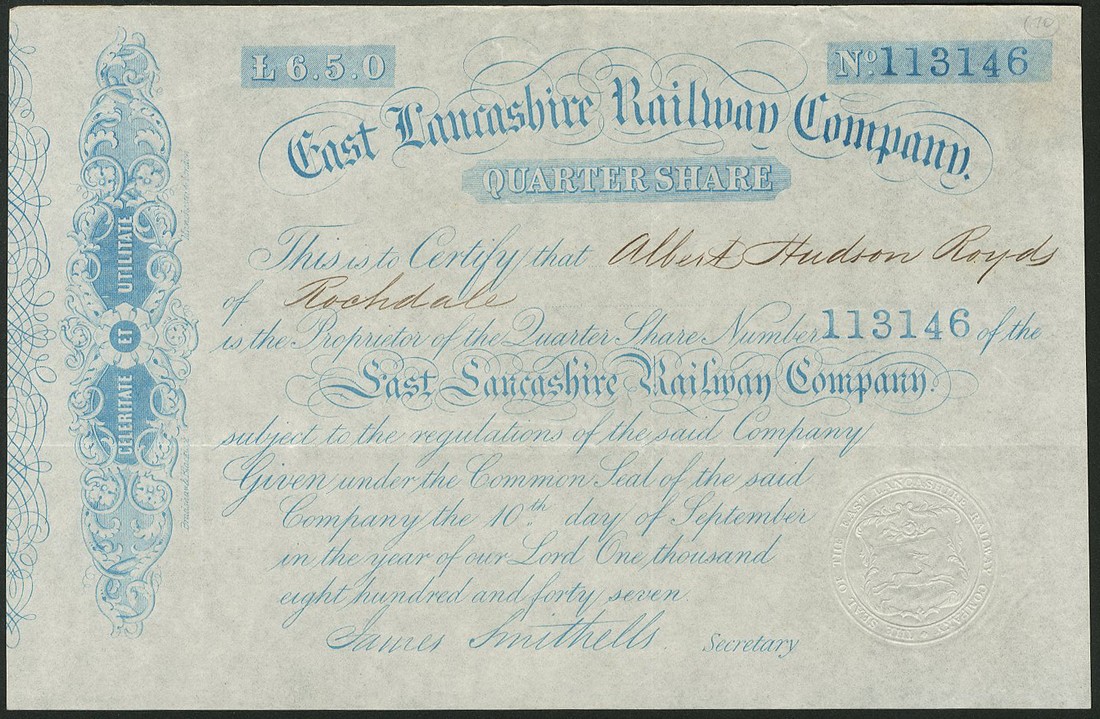 (70)
Ł 6.5.0
Nº 113146
East Lancashire Railway Company.
QUARTER SHARE
This is to Certify that Albert Hudson Royds
of Rochdale
is the Proprietor of the Quarter Share Number 113146 of the
East Lancashire Railway Company.
subject to the regulations of the said Company
Given under the Common Seal of the said
Company the 10th day of September
in the year of our Lord One thousand
eight hundred and forty seven.
James Smithells Secretary
CELERITATE ET UTILITATE
THE SEAL OF THE EAST LANCASHIRE RAILWAY COMPANY